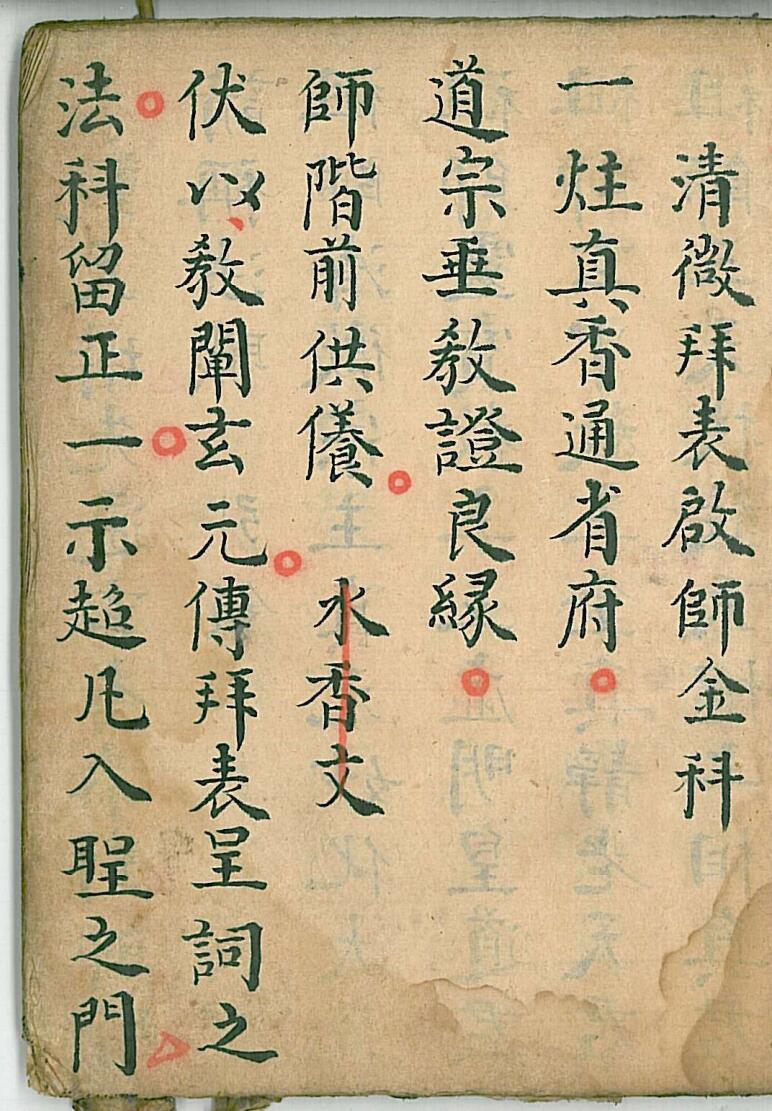 清微拜表啟師金科
一炷真香通省府
道宗垂教證良緣
師階前供儀 水香文
伏以教闡玄元傳拜表呈詞之
法科留正一示超凡入聖之門